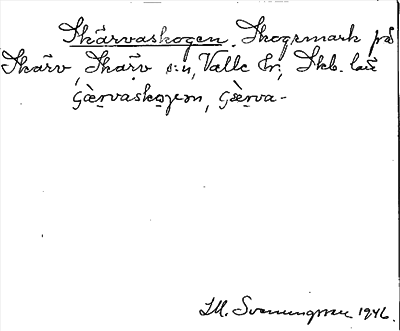 Skärvaskogen. Skogsmark på
Skärv, Skärv s:n, Valle hr, Skb. län
ʃæ̀rvaskoɡən, ʃæ̀rva-
M. Svenungsson 1946.